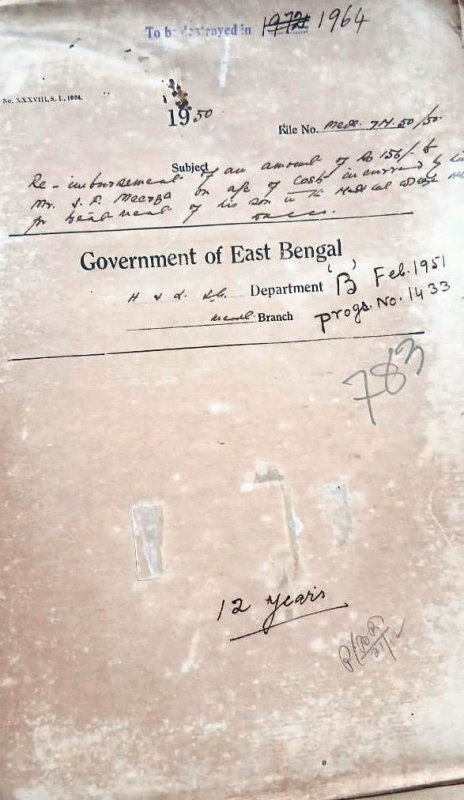 To be destroyed in 1972 1964
No. XXXVIII, S. I., 1904.
1950
File No. Med. 7M-50/50
Subject
Re-imbursement of an amount of Rs 156/- to
Mr. S. R. on a/c of Cost incurred by
for treatment of his son in the Medical College
Government of East Bengal
H & L. Department 'B' Feb. 1951
Branch progs. No. 1433
783
12 years
21/12